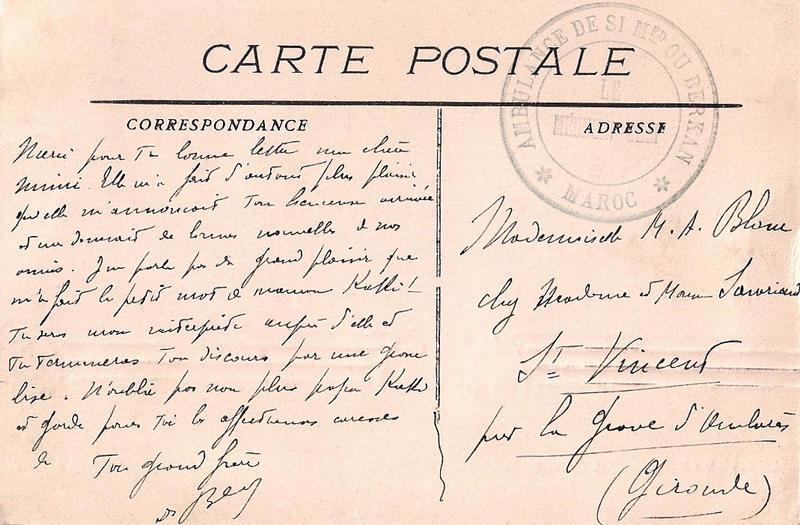 CARTE POSTALE
AMBULANCE DE SI MED OU BERKAN
LE
MÉDECIN CHEF
MAROC
CORRESPONDANCE
Merci pour ta bonne lettre ma chère
mimi. Elle m'a fait d'autant plus plaisir
qu'elle m'annonçait ton heureuse arrivée
et me donnait de bonnes nouvelles de nos
amis. J'en parle pas du grand plaisir que
m'a fait le petit mot de maman Kakki !
Tu seras mon interprète auprès d'elle et
tu termineras ton discours par une grosse
bise. N'oublie pas non plus papa Kakki
et garde pour toi les affectueuses caresses
de Ton grand frère
Dr
ADRESSE
Mademoiselle M. A. Blanc
chez Madame et Monsieur
St Vincent
par la Grave d'Ambarès
(Gironde)